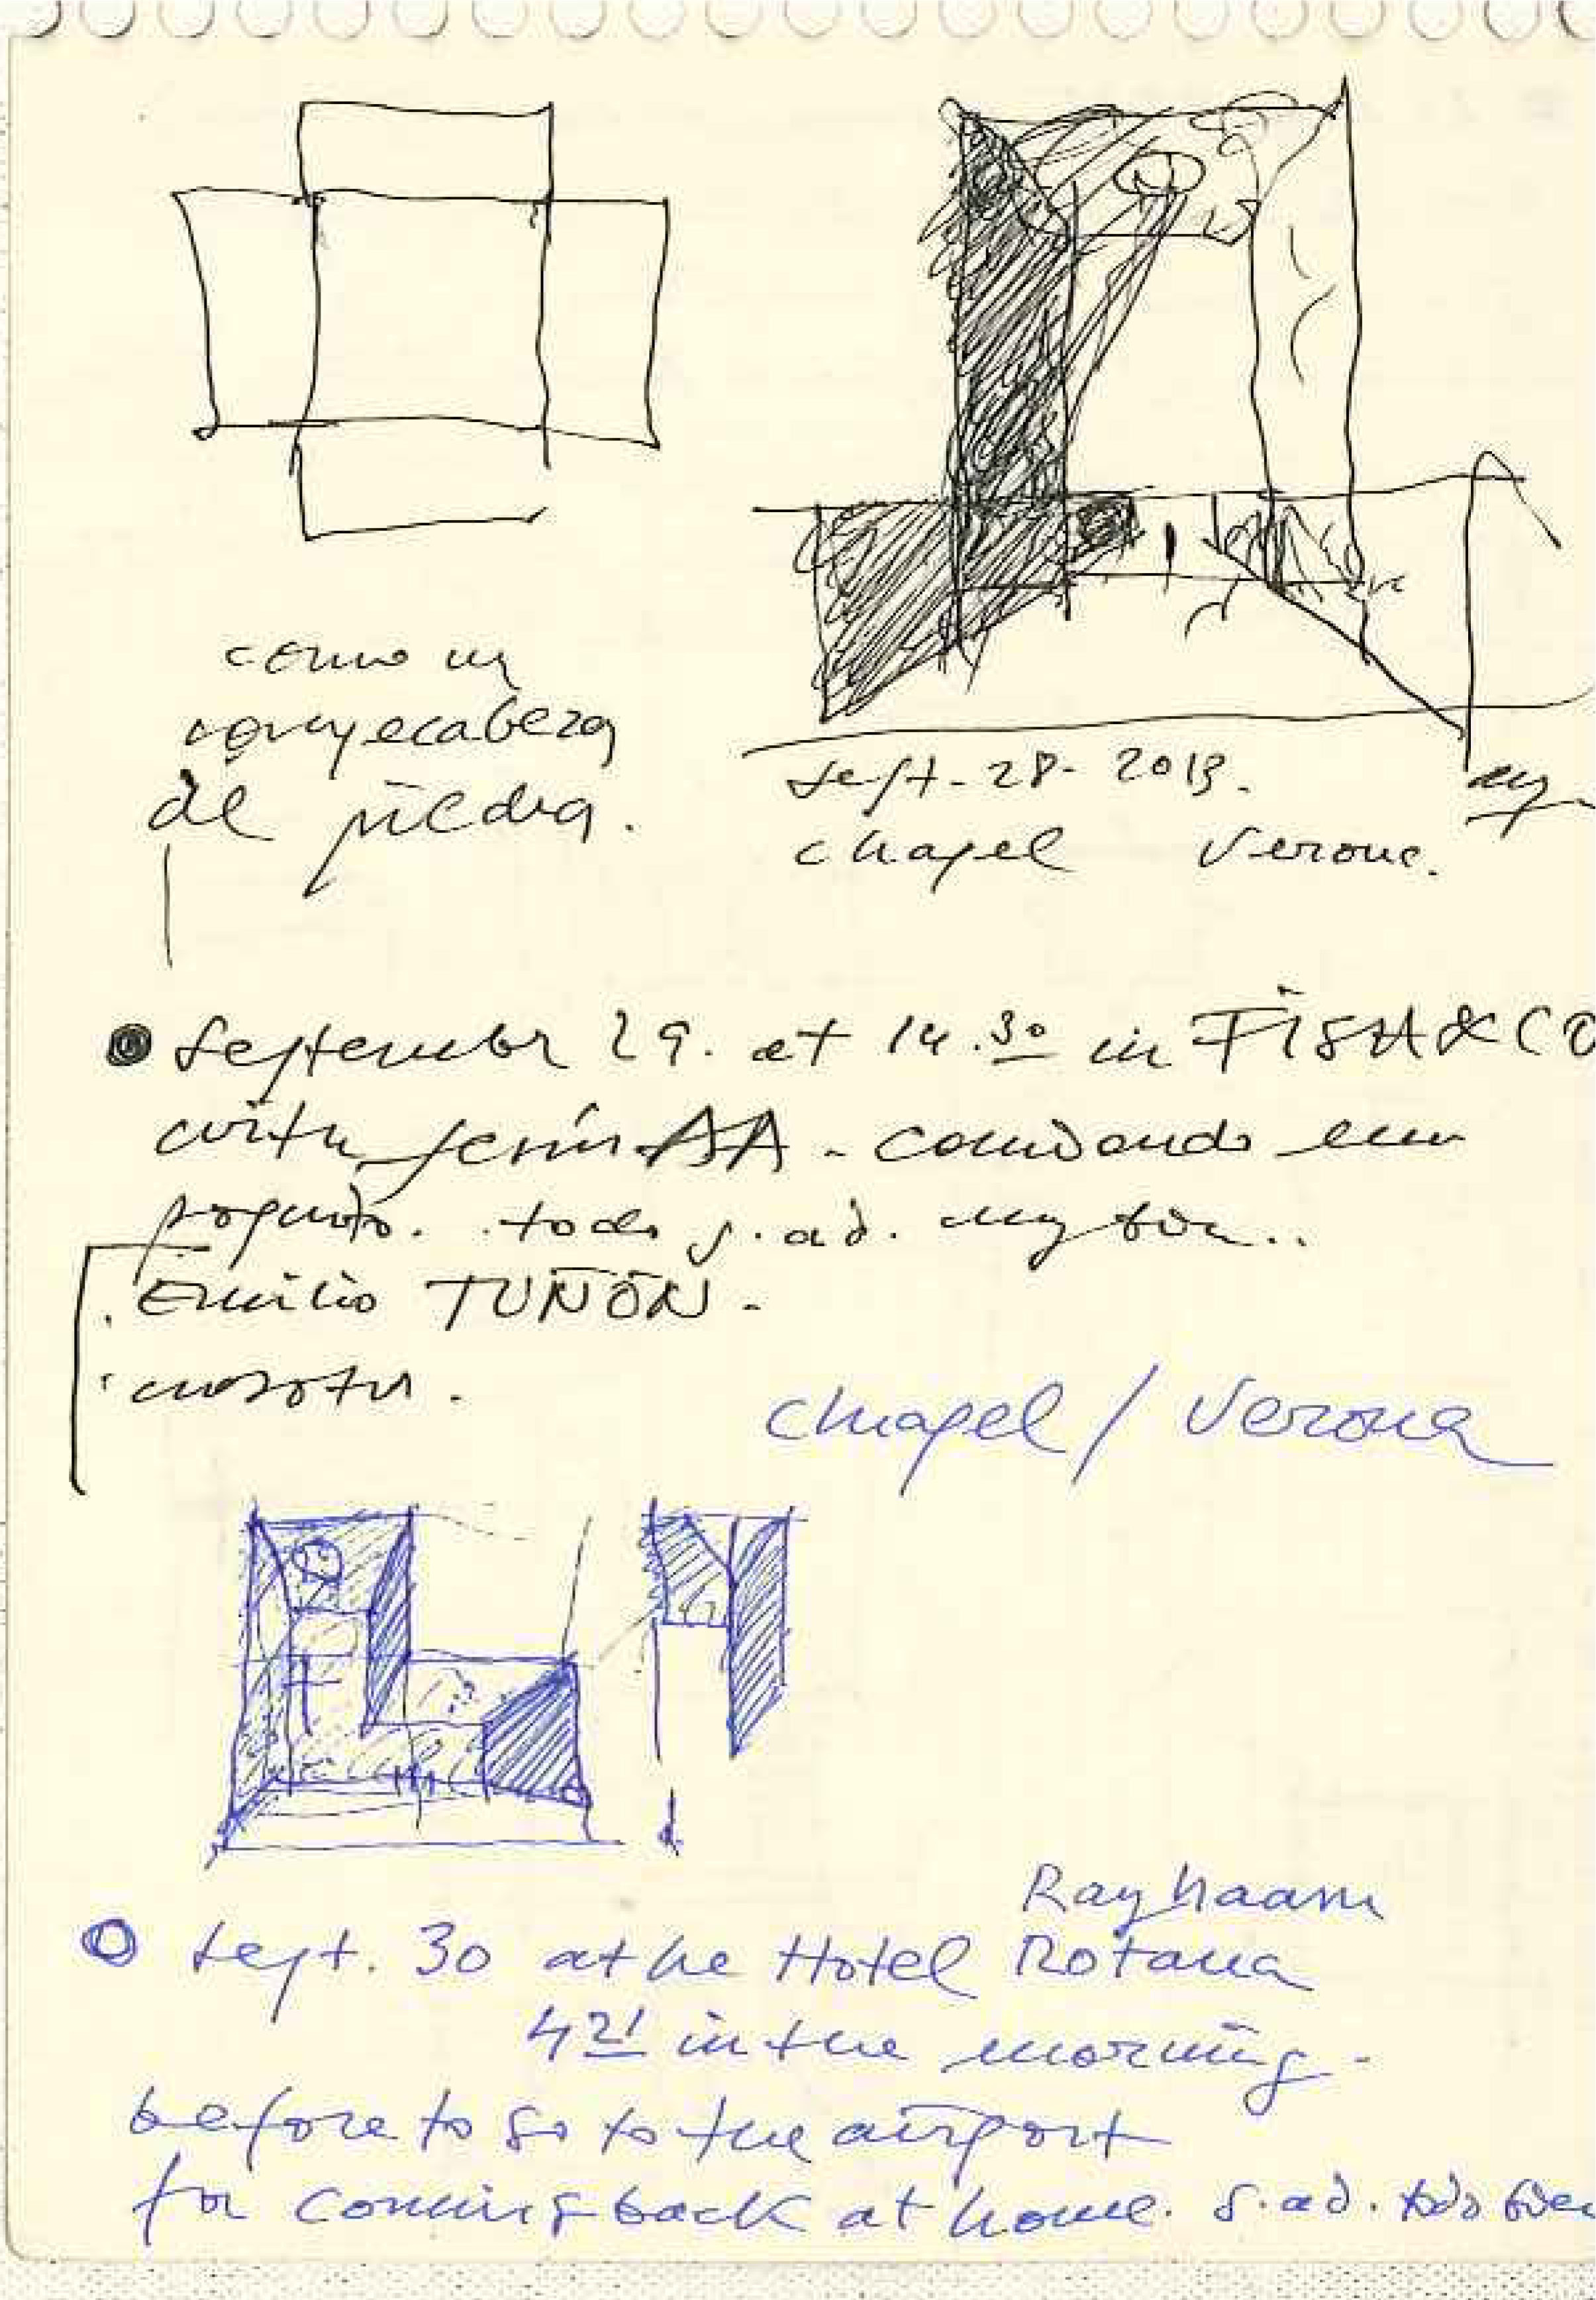 como un
rompecabeza
de piedra.
Sept. 28. 2013.
chapel Verona.
September 29. at 14.30 in FISH & CO
with Jesús AA. comiendo un
poquito. todo g.a.d. muy bien..
. Emilio TUÑÓN.
. nosotros.
chapel / Verona
Rayhaam
Sept. 30 at he Hotel Rotana
4 21 in the morning.
before to go to the airport
for coming back at home. g.a.d. todo bien